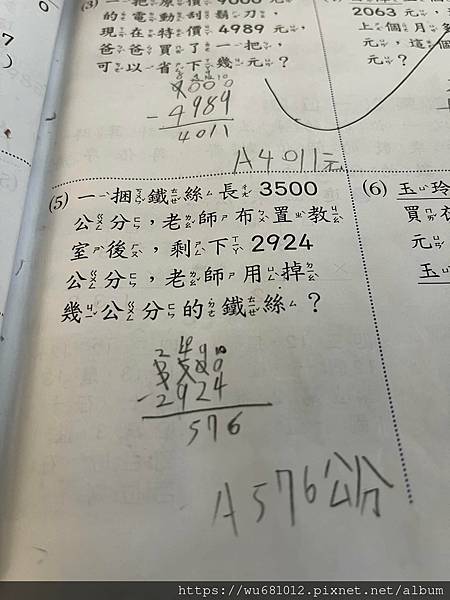 (3) 一把原價9000元
的電動刮鬍刀,
現在特價4989元,
爸爸買了一把,
可以省下幾元?
9000
-4989
4011
A4011元
2063元
上個月
元,這個
元?
(5) 一捆鐵絲長3500
公分,老師布置教
室後,剩下2924
公分,老師用掉
幾公分的鐵絲?
3500
-2924
576
A576公分
(6) 玉玲
買
元
玉
https://wu681012.pixnet.net/album